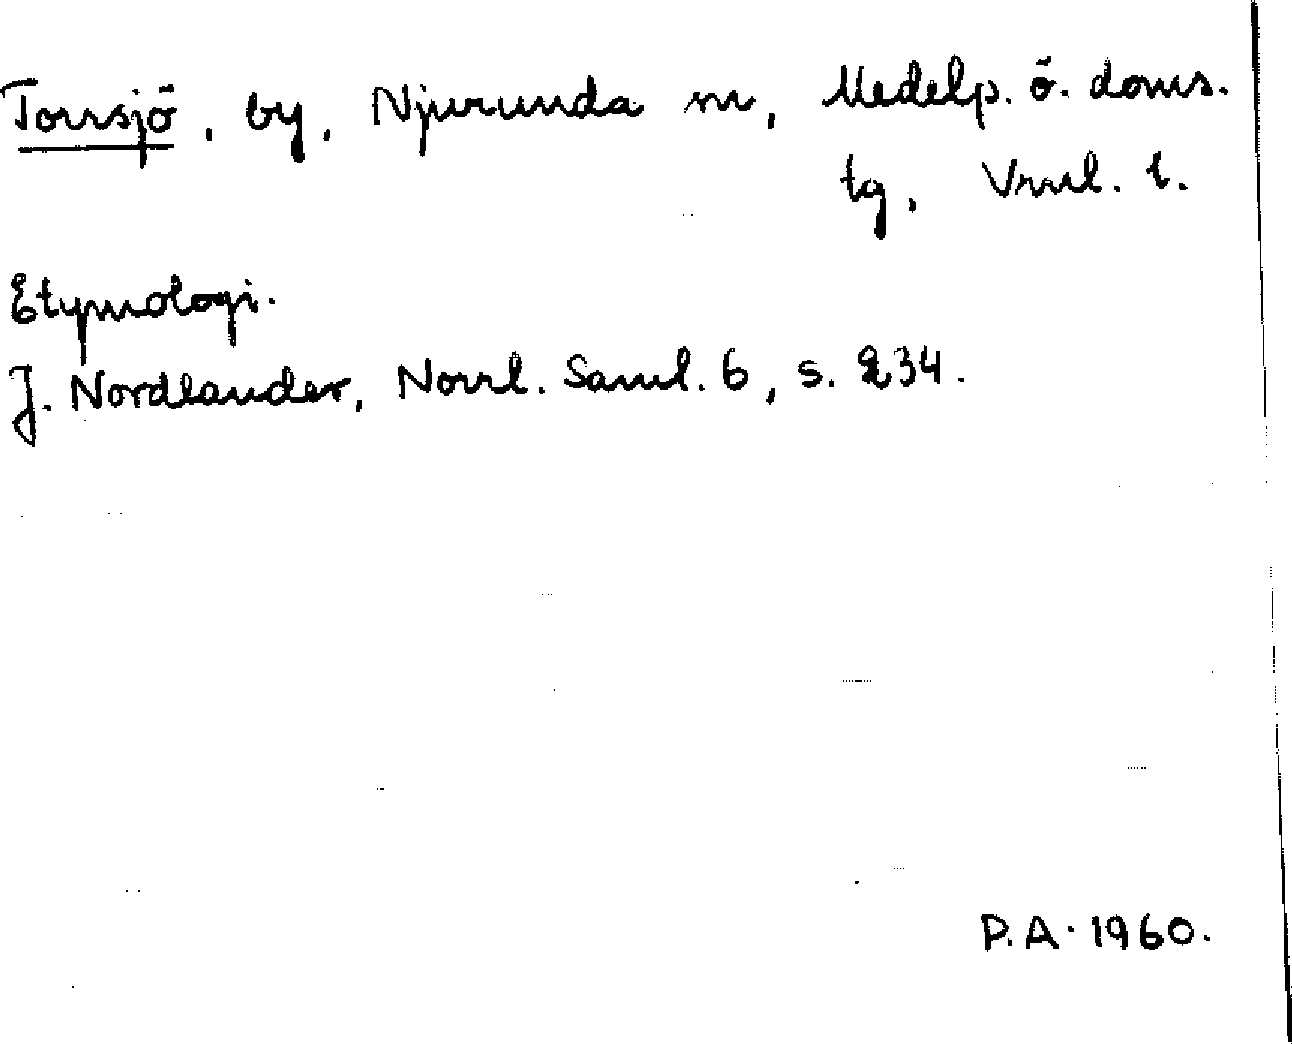 Torrsjö, by, Njurunda sn, Medelp. ö. doms.
tg, Vrnl. l.
Etymologi.
J. Nordlander, Norrl. Saml. 6, s. 234.
P.A. 1960.